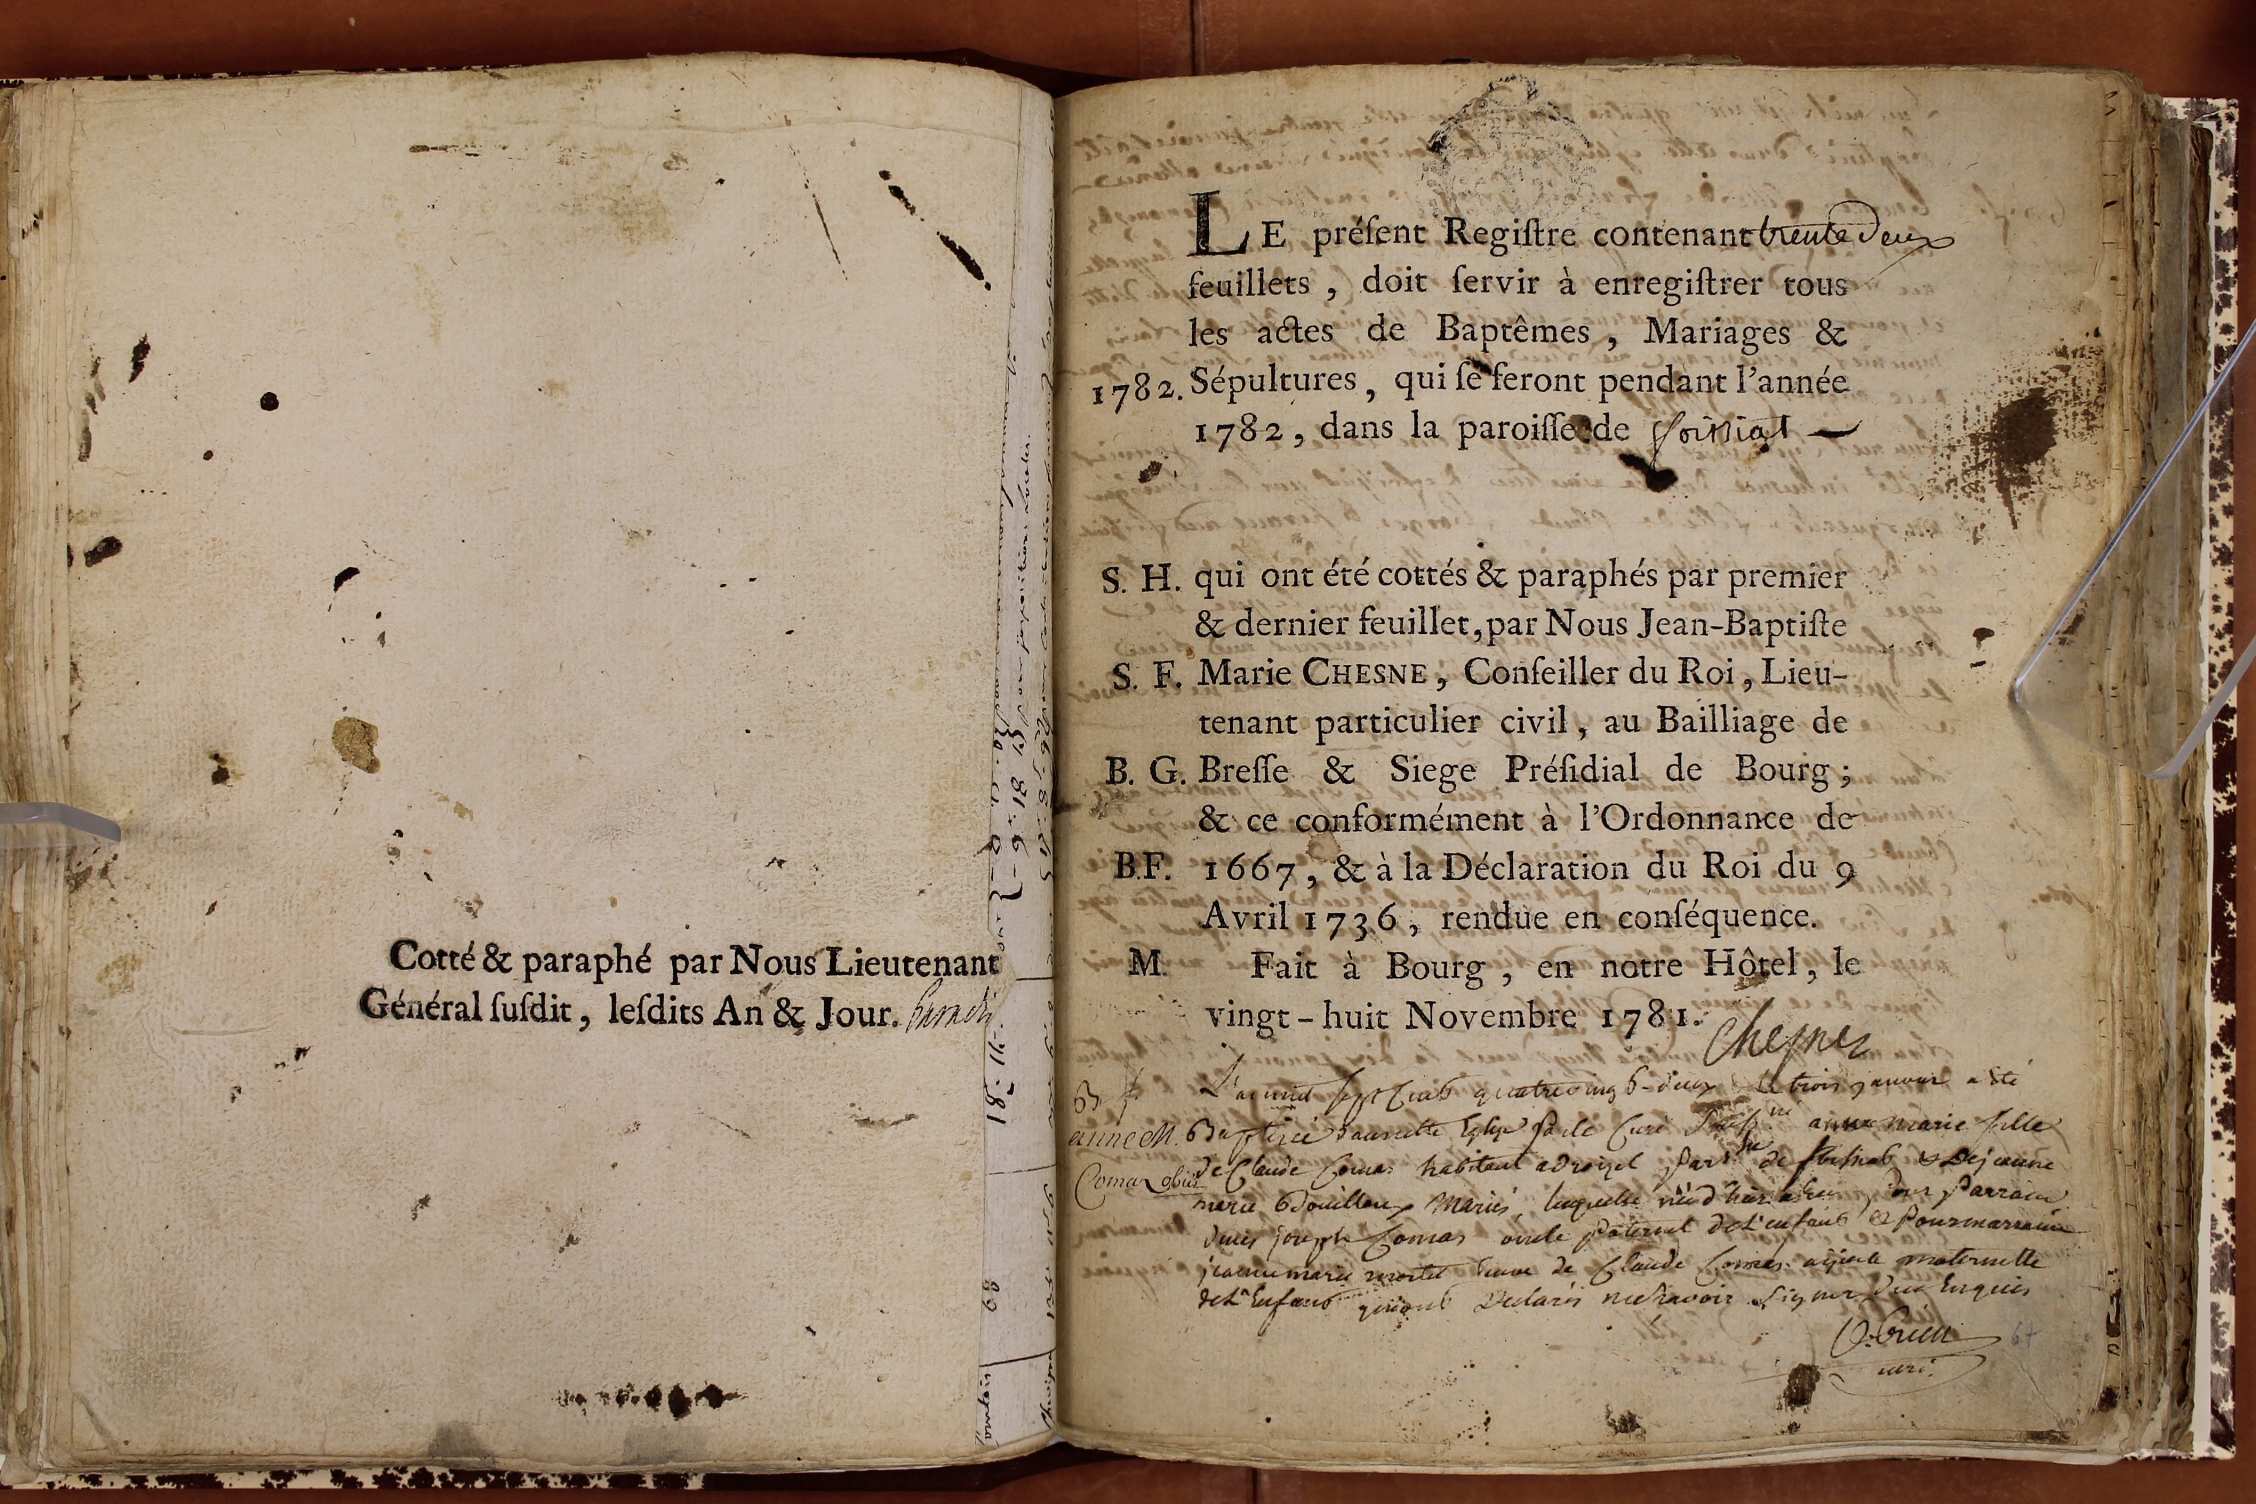 Cotté & paraphé par Nous Lieutenant
Général ſuſdit, leſdits An & Jour.
LE préſent Regiſtre contenant trente deux
feuillets, doit ſervir à enregiſtrer tous
les actes de Baptêmes, Mariages &
1782. Sépultures, qui ſe feront pendant l'année
1782, dans la paroiſſe de foissiat
S. H. qui ont été cottés & paraphés par premier
& dernier feuillet, par Nous Jean-Baptiſte
S. F. Marie CHESNE, Conſeiller du Roi, Lieu-
tenant particulier civil, au Bailliage de
B. G. Breſſe & Siege Préſidial de Bourg;
& ce conformément à l'Ordonnance de
B.F. 1667, & à la Déclaration du Roi du 9
Avril 1736, rendue en conſéquence.
M. Fait à Bourg, en notre Hôtel, le
vingt-huit Novembre 1781. Chesne
B f L'an mil sept cent quatrevingt-deux le trois janvier a été
anne M. Baptisée dans cette Eglise par le Curé anne marie fille
Comas de Claude Comas habitant de & de jeanne
marie Bouilloux Mariés, laquelle pour Parrain
joseph Comas oncle Paternel de L'enfant & Pour marraine
jeanne marie veuve de Claude Comas maternelle
de L'Enfant qui ont Declarés ne Savoir Signer Enquis
curé
67